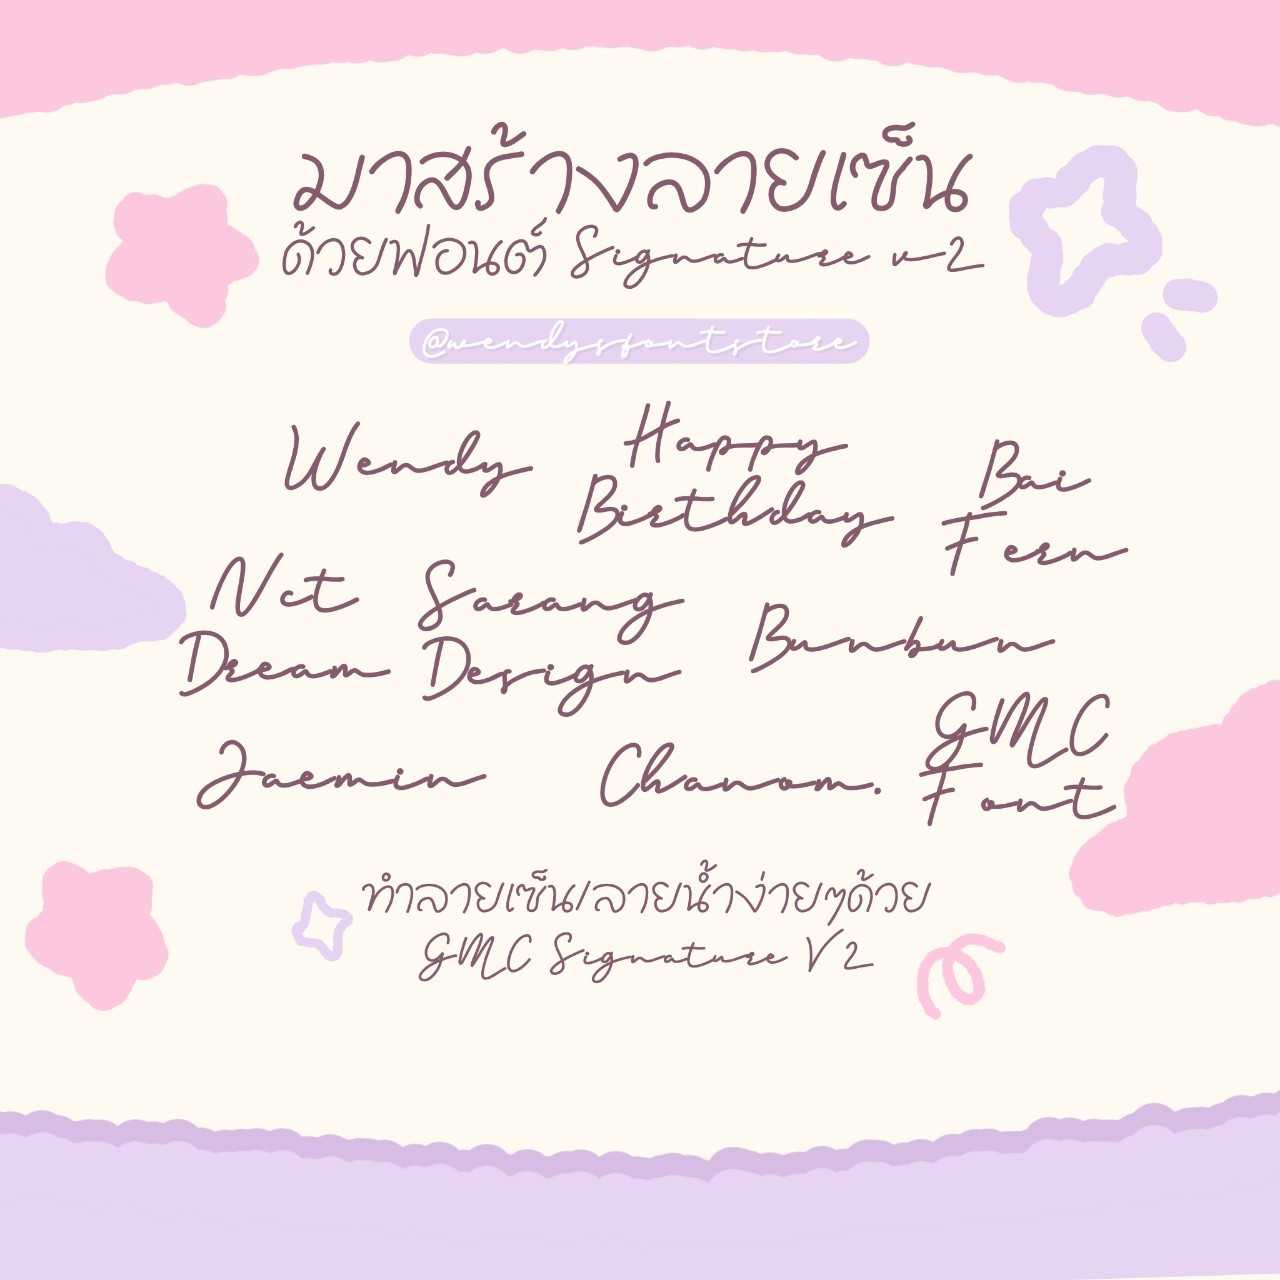 มาสร้างลายเซ็น
ด้วยฟอนต์ Signature v2
@wendysfontstore
Wendy
Happy
Birthday
Bai
Fern
Nct
Dream
Sarang
Design
Bunbun
Jaemin
Chanom.
GMC
Font
ทำลายเซ็น/ลายน้ำง่ายๆด้วย
GMC Signature V2